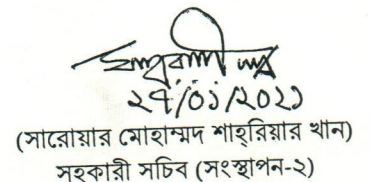 ২৭/০১/২০২১
(সারোয়ার মোহাম্মদ শাহ্‌রিয়ার খান)
সহকারী সচিব (সংস্থাপন-২)